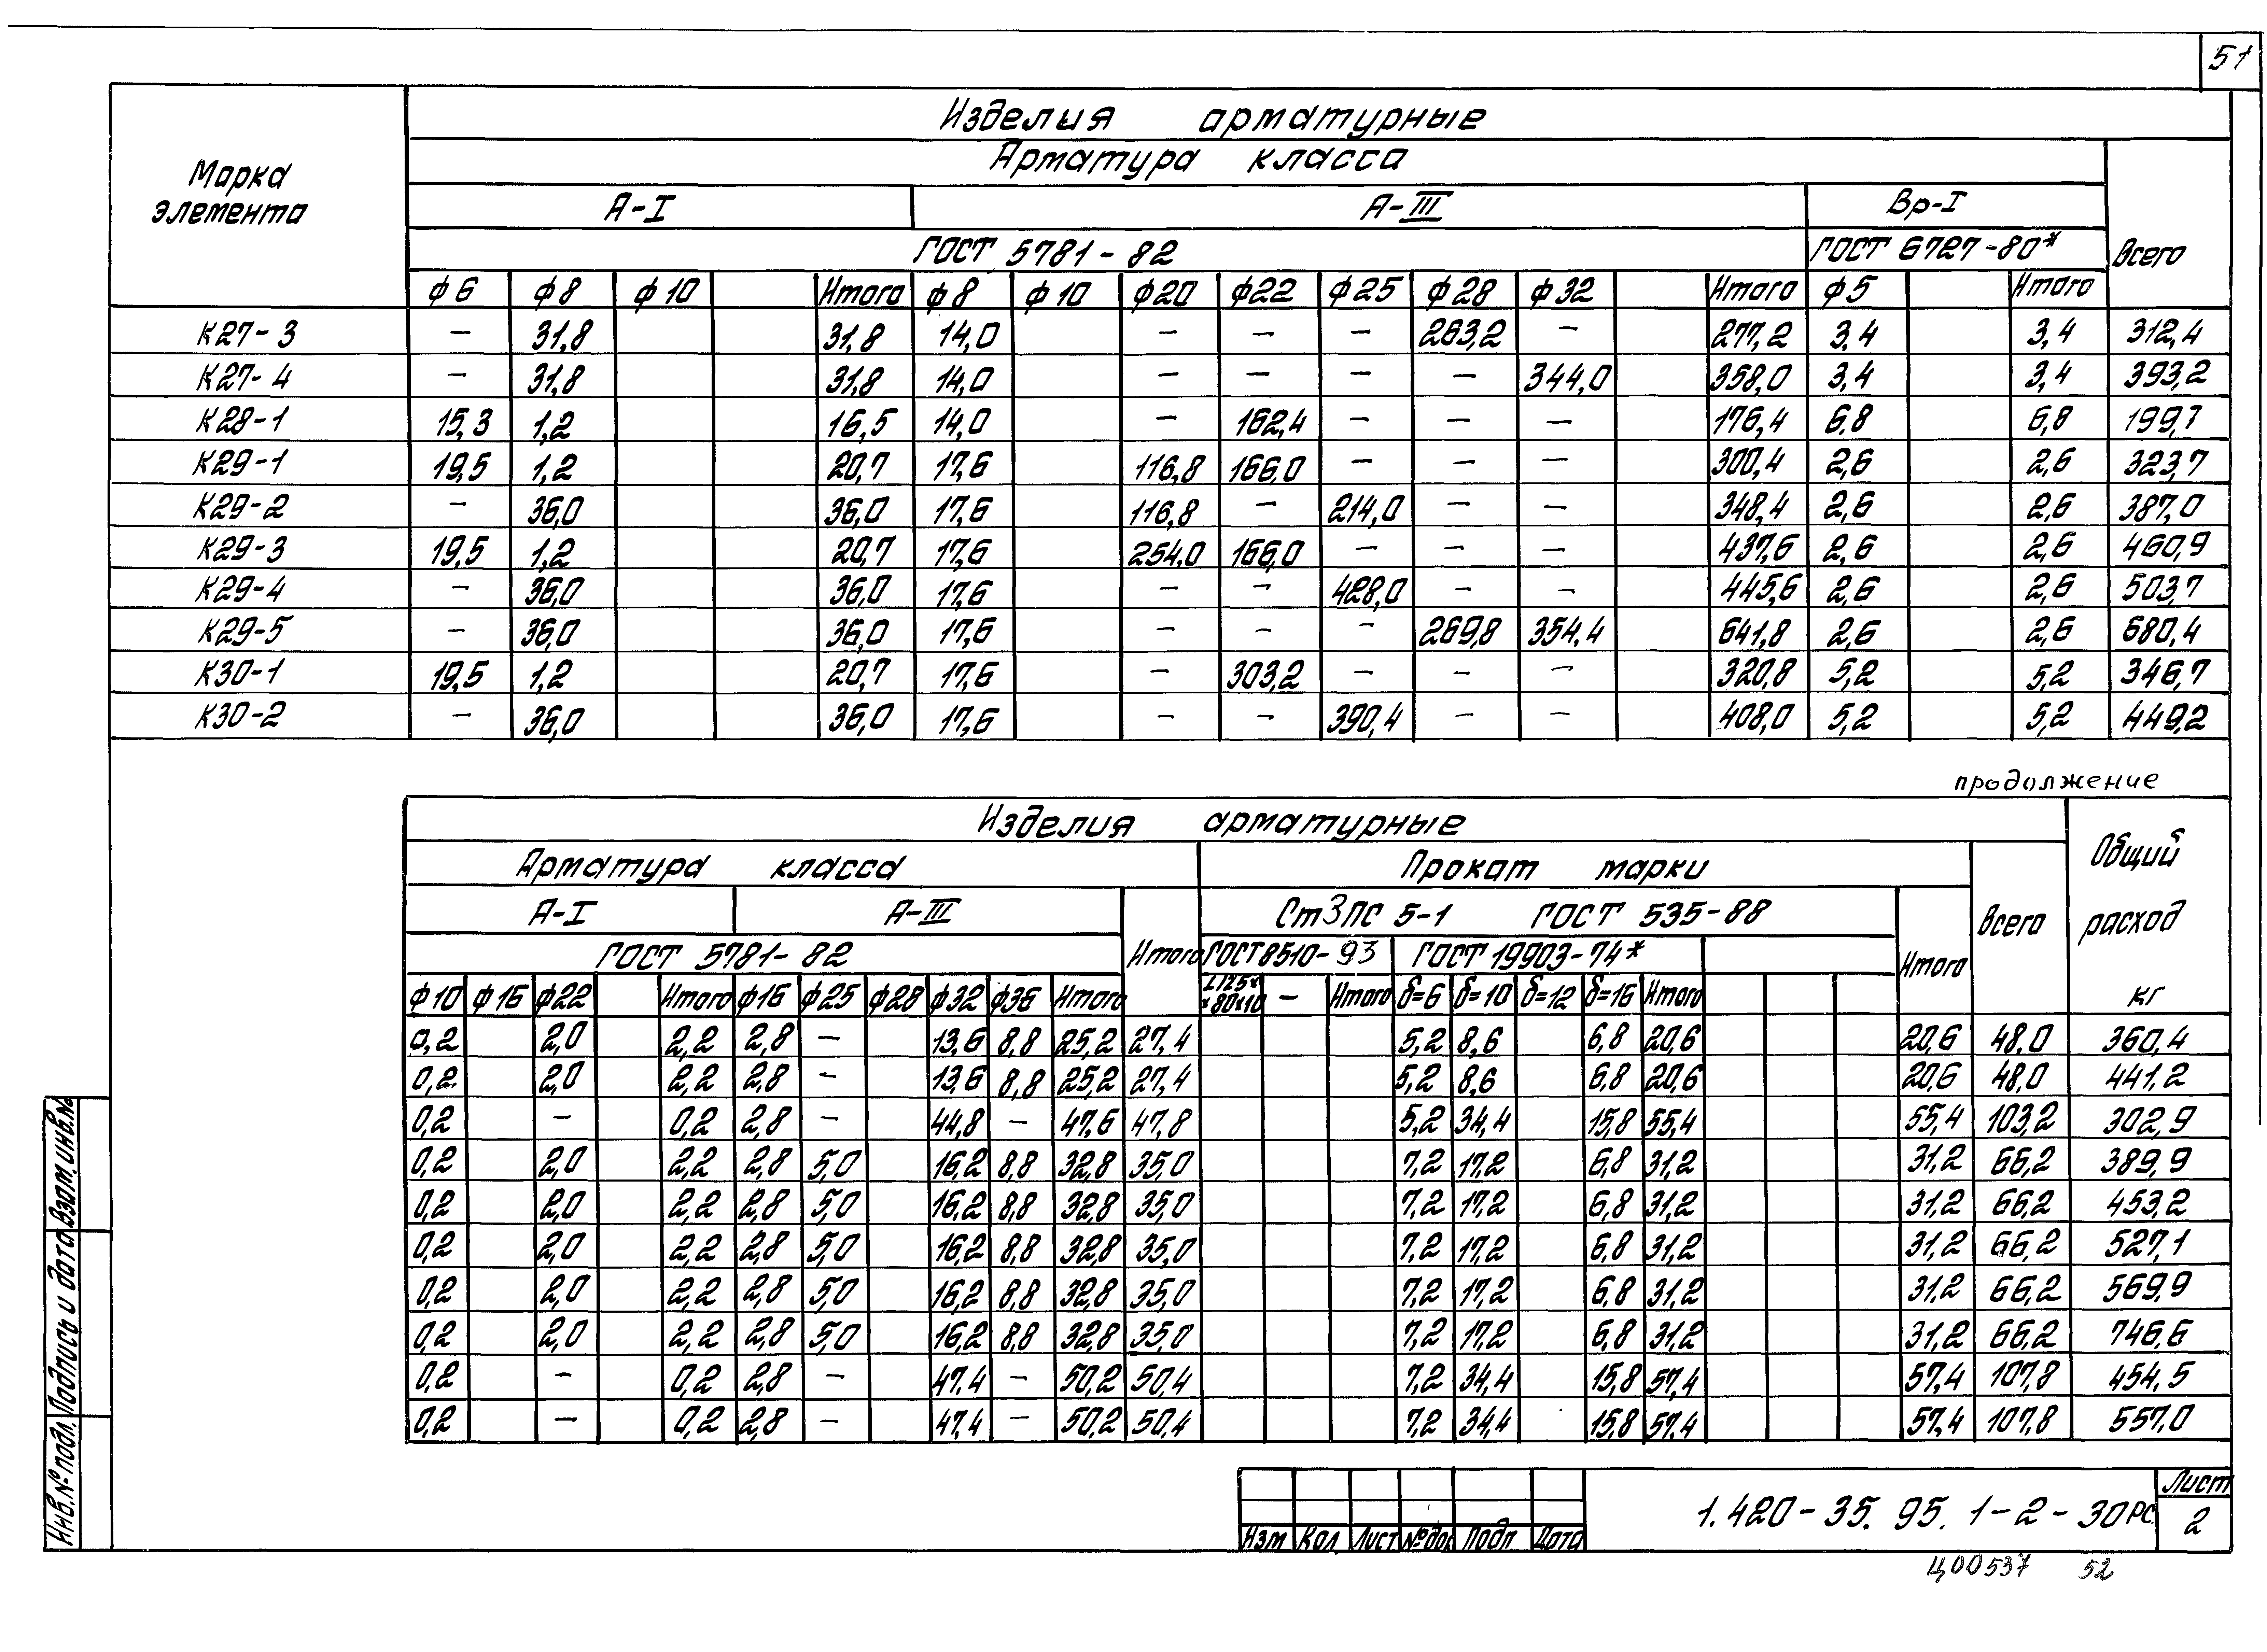 51
Изделия арматурные
Марка элемента
Арматура класса
Всего
А-I А-III Вр-I
ГОСТ 5781-82 ГОСТ 6727-80*
ф6 ф8 ф10 Итого ф8 ф10 ф20 ф22 ф25 ф28 ф32 Итого ф5 Итого
К27-3 — 31,8 31,8 14,0 — — — 263,2 — 277,2 3,4 3,4 312,4
К27-4 — 31,8 31,8 14,0 — — — — 344,0 358,0 3,4 3,4 393,2
К28-1 15,3 1,2 16,5 14,0 — 162,4 — — — 176,4 6,8 6,8 199,7
К29-1 19,5 1,2 20,7 17,6 116,8 166,0 — — — 300,4 2,6 2,6 323,7
К29-2 — 36,0 36,0 17,6 116,8 — 214,0 — — 348,4 2,6 2,6 387,0
К29-3 19,5 1,2 20,7 17,6 254,0 166,0 — — — 437,6 2,6 2,6 460,9
К29-4 — 36,0 36,0 17,6 — — 428,0 — — 445,6 2,6 2,6 503,7
К29-5 — 36,0 36,0 17,6 — — — 269,8 354,4 641,8 2,6 2,6 680,4
К30-1 19,5 1,2 20,7 17,6 — 303,2 — — — 320,8 5,2 5,2 346,7
К30-2 — 36,0 36,0 17,6 — — 390,4 — — 408,0 5,2 5,2 449,2
продолжение
Изделия арматурные
Общий расход кг
Арматура класса Прокат марки
Всего
А-I А-III Итого Ст3ПС 5-1 ГОСТ 535-88 Итого
ГОСТ 5781-82 ГОСТ 8510-93 ГОСТ 19903-74*
ф10 ф16 ф22 Итого ф16 ф25 ф28 ф32 ф36 Итого L125×
×80×10 — Итого δ=6 δ=10 δ=12 δ=16 Итого
0,2 2,0 2,2 2,8 — 13,6 8,8 25,2 27,4 5,2 8,6 6,8 20,6 20,6 48,0 360,4
0,2 2,0 2,2 2,8 — 13,6 8,8 25,2 27,4 5,2 8,6 6,8 20,6 20,6 48,0 441,2
0,2 — 0,2 2,8 — 44,8 — 47,6 47,8 5,2 34,4 15,8 55,4 55,4 103,2 302,9
0,2 2,0 2,2 2,8 5,0 16,2 8,8 32,8 35,0 7,2 17,2 6,8 31,2 31,2 66,2 389,9
0,2 2,0 2,2 2,8 5,0 16,2 8,8 32,8 35,0 7,2 17,2 6,8 31,2 31,2 66,2 453,2
0,2 2,0 2,2 2,8 5,0 16,2 8,8 32,8 35,0 7,2 17,2 6,8 31,2 31,2 66,2 527,1
0,2 2,0 2,2 2,8 5,0 16,2 8,8 32,8 35,0 7,2 17,2 6,8 31,2 31,2 66,2 569,9
0,2 2,0 2,2 2,8 5,0 16,2 8,8 32,8 35,0 7,2 17,2 6,8 31,2 31,2 66,2 746,6
0,2 — 0,2 2,8 — 47,4 — 50,2 50,4 7,2 34,4 15,8 57,4 57,4 107,8 454,5
0,2 — 0,2 2,8 — 47,4 — 50,2 50,4 7,2 34,4 15,8 57,4 57,4 107,8 557,0
Инв.№ подл. Подпись и дата Взам.инв.№
Изм Кол Лист №док Подп Дата
1.420-35.95.1-2-30РС
Лист
2
Ц00537 52